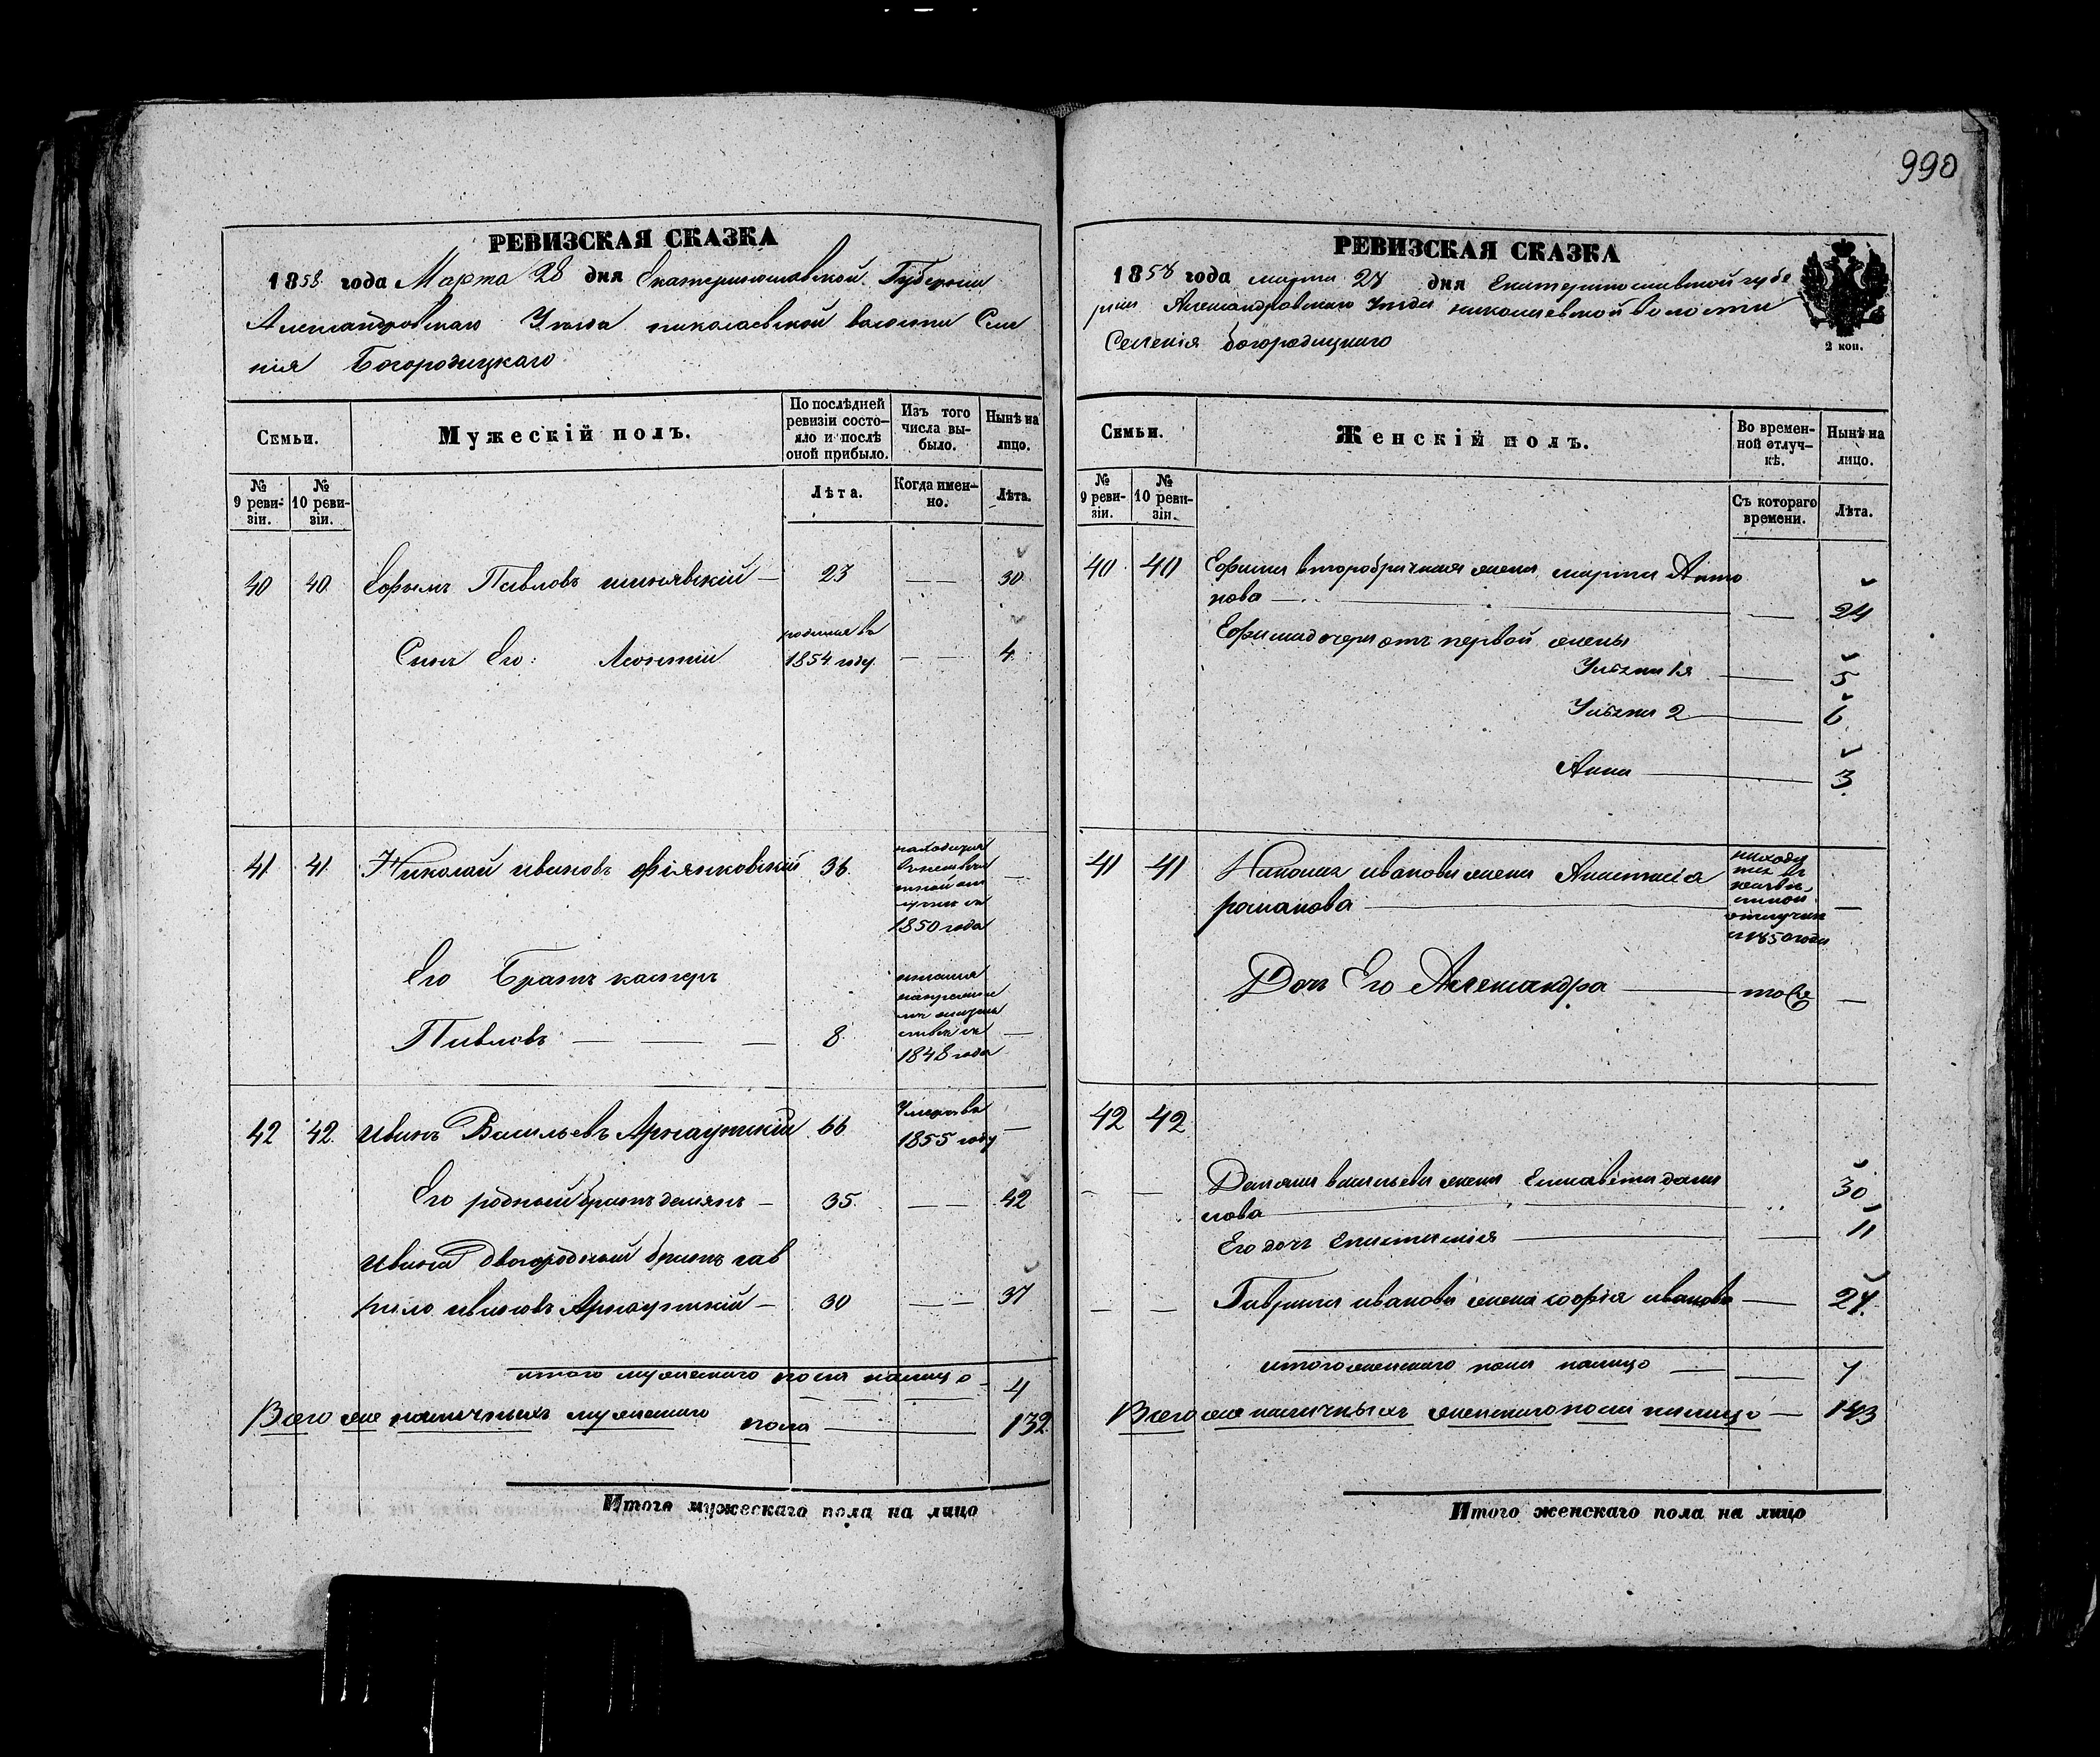 990
РЕВИЗСКАЯ СКАЗКА
1858 года Марта 28 дня Екатеринославской Губерніи
Александровскаго Уезда николаевской волости Селе
нія Богородицкаго
Семьи.
Мужескій полъ.
По послѣдней ревизіи состо-
яло и послѣ оной прибыло.
Изъ того числа вы-
было.
Нынѣ на лицо.
№ 9 реви-
зіи.
№ 10 реви-
зіи.
Лѣта.
Когда имен-
но.
Лѣта.
40 40 Ефимъ Павловъ — 23 — — 30
Сынъ Его: Леонтій родился въ 1854 году — — 4
41 41 Николай ивановъ 36. находится
отлучке съ
1850 года —
Его Братъ
Павловъ — — — 8.
1848 года —
42 42 иванъ Васильевъ Арнаутскій 66 Умеръ въ
1855 году —
Его родный братъ демянъ — 35. — — 42
ивана двоюродный братъ гав
рило ивановъ Арнаутскій — 30 — — 37
итого мужескаго пола налицо — 4
Всего же наличныхъ мужескаго пола — 132
Итого мужескаго пола на лицо
РЕВИЗСКАЯ СКАЗКА
1858 года марта 28 дня Екатеринославской губе
рніи Александровскаго Уезда николаевской волости
Селенія богородицкаго
2 коп.
Семьи.
Женскій полъ.
Во времен-
ной отлуч-
кѣ.
Нынѣ на лицо.
№ 9 реви-
зіи.
№ 10 реви-
зіи.
Съ котораго времени.
Лѣта.
40 40 Ефима второбрачная жена марта Анто
нова — — 24
Ефима дочери отъ первой жены
Ульяна 1я — 5
Ульяна 2 — 6
Анна — 3.
41 41 Николая иванова жена Анастасія
романова — находи
тся въ
отлучке
съ 1850 года —
Дочь Его Александра — тоже —
42 42
— — Демяна васильева жена Елисавета дани
лова — 30
Его дочь — 11
— — Гаврила иванова жена софія иванова — 27.
итого женскаго пола налицо — 7
Всего же наличныхъ женскаго пола налицо — 143
Итого женскаго пола на лицо